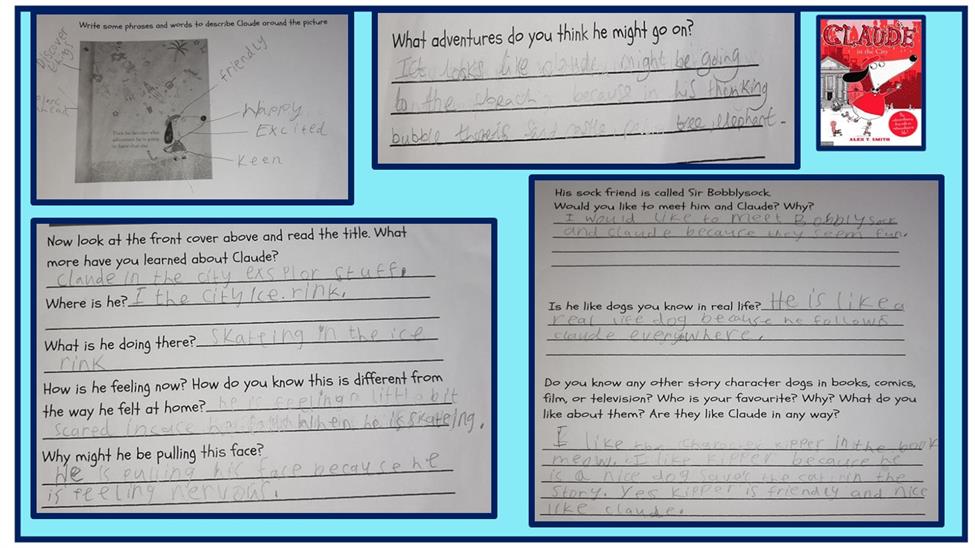 Write some phrases and words to describe Claude around the picture
Discover
friendly
Happy
Excited
Keen
What adventures do you think he might go on?
It looks like claude might be going
to the beach, because in his thinking
bubble there is Sand castle tree elephant.
CLAUDE
in the City
ALEX T. SMITH
Now look at the front cover above and read the title. What
more have you learned about Claude?
Claude in the city exsplor stuff.
Where is he? I the city Ice. rink.
What is he doing there? skatting in the ice
rink
How is he feeling now? How do you know this is different from
the way he felt at home? he is feeling a little bit
scared incase he he is skateing.
Why might he be pulling this face?
He is pulling his face because he
is feeling nervous.
His sock friend is called Sir Bobblysock.
Would you like to meet him and Claude? Why?
I would like to meet Bobblysock
and claude because they seem fun.
Is he like dogs you know in real life? He is like a
real life dog because he follows
claude everywhere.
Do you know any other story character dogs in books, comics,
film, or television? Who is your favourite? Why? What do you
like about them? Are they like Claude in any way?
I like the character kipper in the book
meow. I like kipper because he
is a nice dog saves the cat in the
story. Yes kipper is friendly and nice
like claude.